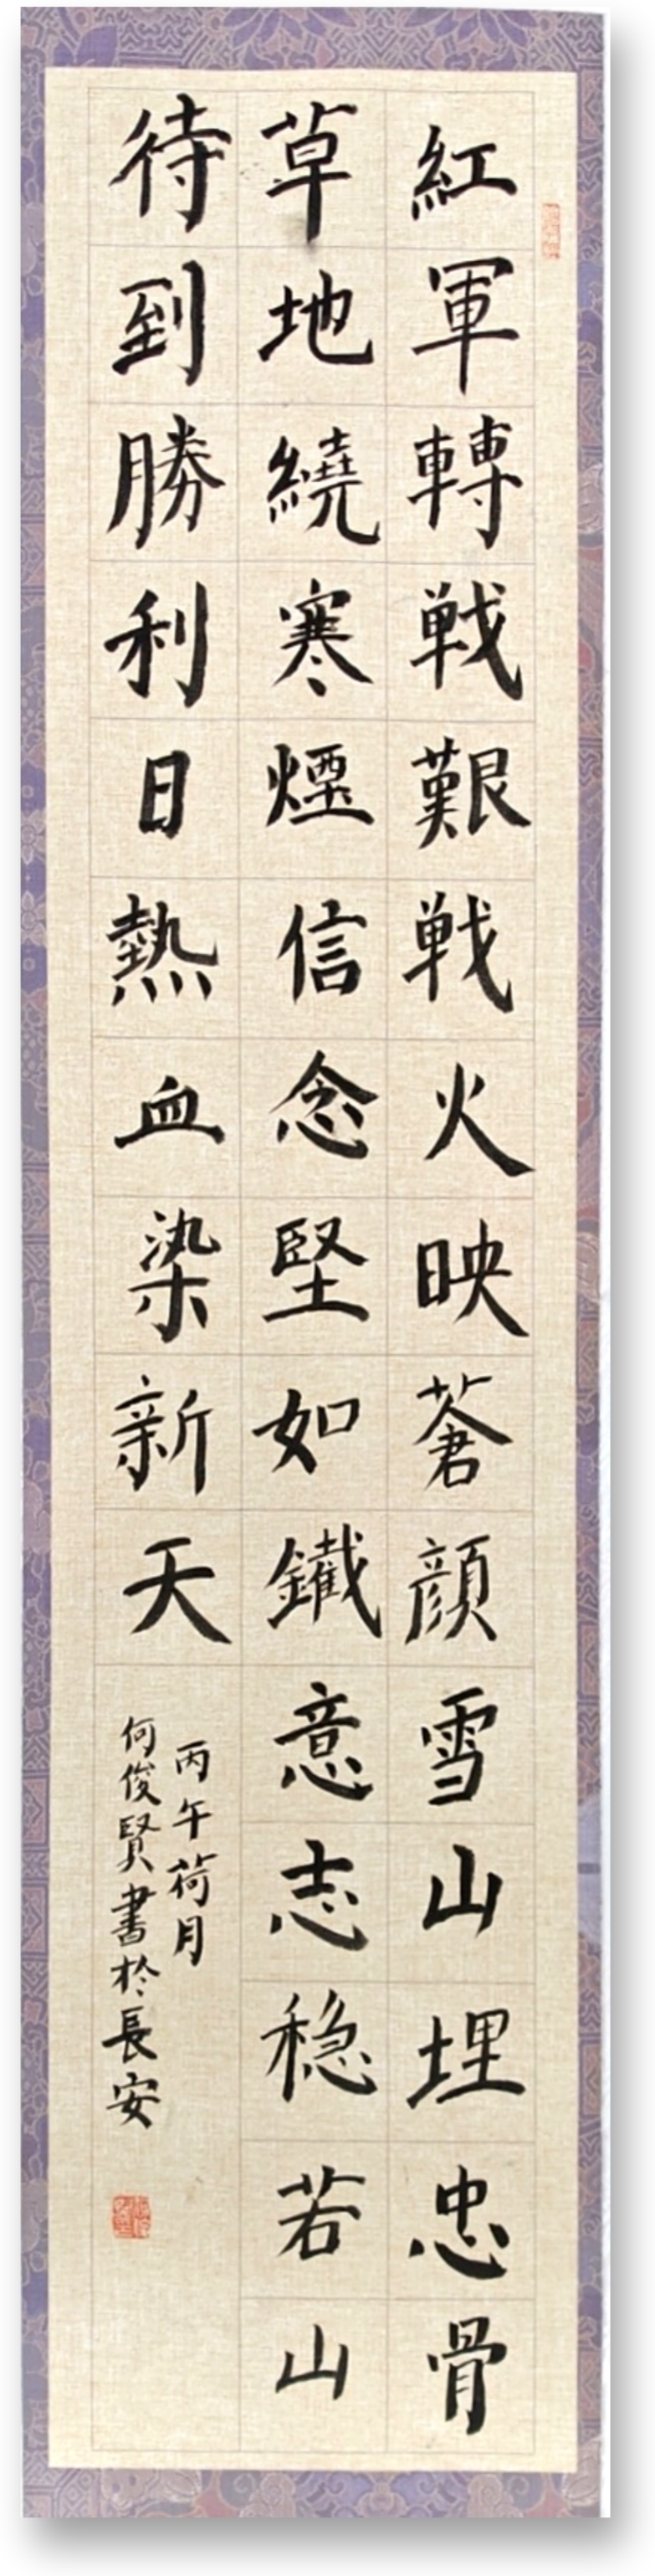 紅軍轉戦艱戦火映蒼顔雪山埋忠骨
草地繞寒煙信念堅如鐵意志穏若山
待到勝利日熱血染新天
丙午荷月
何俊賢書於長安